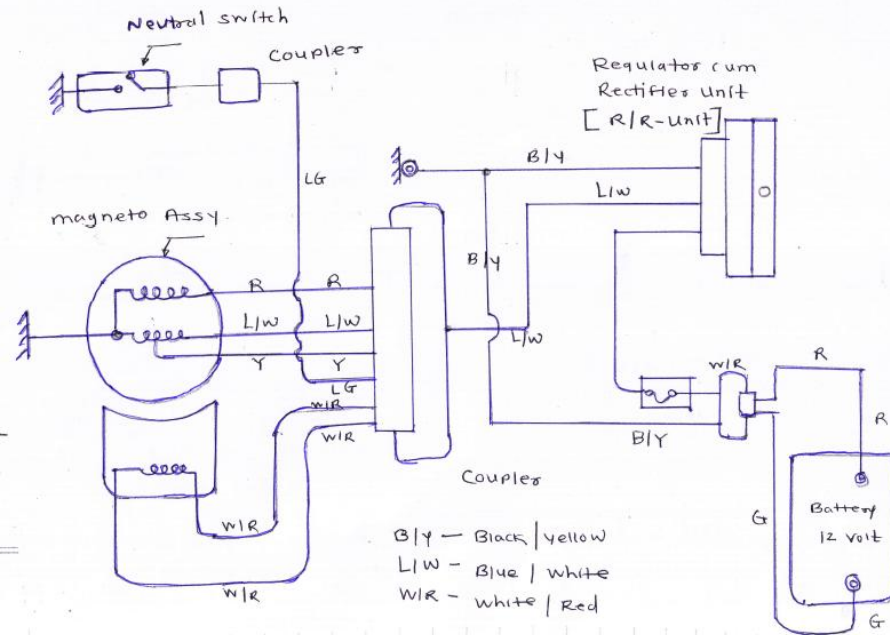 Neutral switch
Coupler
Regulator cum
Rectifier Unit
[ R/R-Unit]
B/Y
LG
L/W
magneto Assy.
B/Y
R
R
L/W
L/W
L/W
Y
Y
LG
W/R
W/R
W/R
R
B/Y
R
Coupler
Battery
12 volt
G
W/R
W/R
B/Y — Black/yellow
L/W - Blue/white
W/R - white/Red
G